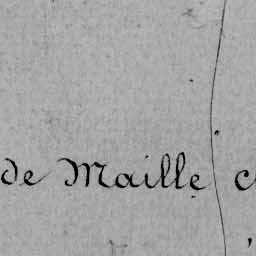 de Maille